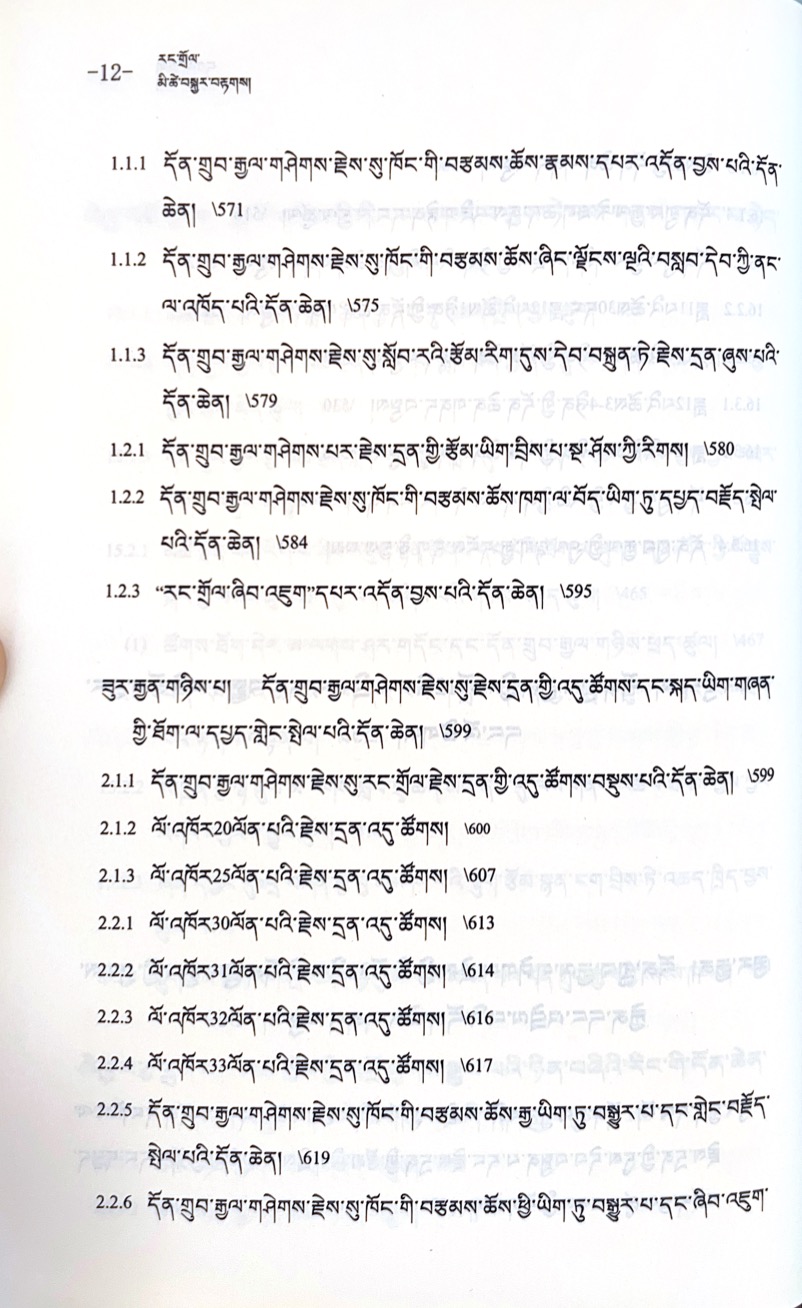 -12-
རང་གྲོལ་
མི་ཚེ་བསྐྱར་བརྟགས།
1.1.1 དོན་གྲུབ་རྒྱལ་གཤེགས་རྗེས་སུ་ཁོང་གི་བརྩམས་ཆོས་རྣམས་དཔར་འདོན་བྱས་པའི་དོན་
ཆེན། \571
1.1.2 དོན་གྲུབ་རྒྱལ་གཤེགས་རྗེས་སུ་ཁོང་གི་བརྩམས་ཆོས་ཞིང་ལྗོངས་ལྔའི་བསླབ་དེབ་ཀྱི་ནང་
ལ་འཁོད་པའི་དོན་ཆེན། \575
1.1.3 དོན་གྲུབ་རྒྱལ་གཤེགས་རྗེས་སུ་སློབ་རའི་རྩོམ་རིག་དུས་དེབ་བསྐྲུན་ཏེ་རྗེས་དྲན་ཞུས་པའི་
དོན་ཆེན། \579
1.2.1 དོན་གྲུབ་རྒྱལ་གཤེགས་པར་རྗེས་དྲན་གྱི་རྩོམ་ཡིག་བྲིས་པ་སྔ་ཤོས་ཀྱི་རིགས། \580
1.2.2 དོན་གྲུབ་རྒྱལ་གཤེགས་རྗེས་སུ་ཁོང་གི་བརྩམས་ཆོས་ཁག་ལ་བོད་ཡིག་ཏུ་དཔྱད་བརྗོད་སྤེལ་
པའི་དོན་ཆེན། \584
1.2.3 “རང་གྲོལ་ཞིབ་འཇུག”དཔར་འདོན་བྱས་པའི་དོན་ཆེན། \595
ཟུར་རྒྱན་གཉིས་པ། དོན་གྲུབ་རྒྱལ་གཤེགས་རྗེས་སུ་རྗེས་དྲན་གྱི་འདུ་ཚོགས་དང་སྐད་ཡིག་གཞན་
གྱི་ཐོག་ལ་དཔྱད་གླེང་སྤེལ་པའི་དོན་ཆེན། \599
2.1.1 དོན་གྲུབ་རྒྱལ་གཤེགས་རྗེས་སུ་རང་གྲོལ་རྗེས་དྲན་གྱི་འདུ་ཚོགས་བསྡུས་པའི་དོན་ཆེན། \599
2.1.2 ལོ་འཁོར20ལོན་པའི་རྗེས་དྲན་འདུ་ཚོགས། \600
2.1.3 ལོ་འཁོར25ལོན་པའི་རྗེས་དྲན་འདུ་ཚོགས། \607
2.2.1 ལོ་འཁོར30ལོན་པའི་རྗེས་དྲན་འདུ་ཚོགས། \613
2.2.2 ལོ་འཁོར31ལོན་པའི་རྗེས་དྲན་འདུ་ཚོགས། \614
2.2.3 ལོ་འཁོར32ལོན་པའི་རྗེས་དྲན་འདུ་ཚོགས། \616
2.2.4 ལོ་འཁོར33ལོན་པའི་རྗེས་དྲན་འདུ་ཚོགས། \617
2.2.5 དོན་གྲུབ་རྒྱལ་གཤེགས་རྗེས་སུ་ཁོང་གི་བརྩམས་ཆོས་རྒྱ་ཡིག་ཏུ་བསྒྱུར་པ་དང་གླེང་བརྗོད་
སྤེལ་པའི་དོན་ཆེན། \619
2.2.6 དོན་གྲུབ་རྒྱལ་གཤེགས་རྗེས་སུ་ཁོང་གི་བརྩམས་ཆོས་ཕྱི་ཡིག་ཏུ་བསྒྱུར་པ་དང་ཞིབ་འཇུག་